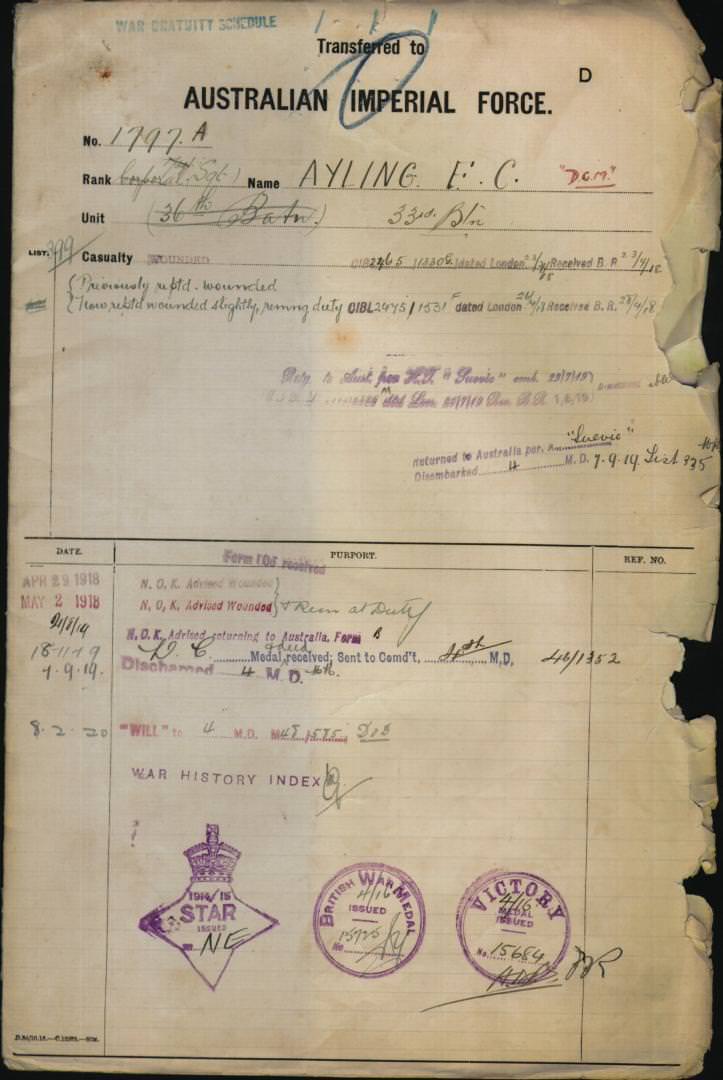 WAR GRATUITY SCHEDULE
Transferred to
D
AUSTRALIAN IMPERIAL FORCE.
No. 1797. A
Rank Corporal Sgt) Name AYLING. E. C. "D.C.M."
Unit (36th Batn.) 33rd. Btn
LIST.
Casualty WOUNDED dated London Received B. R.
{Previously reptd. wounded
{Now reptd wounded slightly, remng duty CIBL 2475/1531 dated London Received B. R. 28/4/18
Retg to Aust. per H.T. "Suevic" emb. 22/7/19
Returned to Australia per. "Suevic"
Disembarked 4 M.D. 7.9.19. List 335
DATE. PURPORT. REF. NO.
Form received
APR 29 1918 N. O. K. Advised Wounded}
MAY 2 1918 N. O. K. Advised Wounded} & Rem at Duty
N.O.K. Advised returning to Australia. Form B
18-11-19 D. C. Medal received; Sent to Comd't, 4th M.D. 46/1352
7.9.19. Discharged 4 M.D.
8.2.20 "WILL" to 4 M.D.
WAR HISTORY INDEX
1914/15
STAR
ISSUED
NE
BRITISH WAR MEDAL
4/16
ISSUED
No 15725
VICTORY
4/16
MEDAL
ISSUED
No. 15684